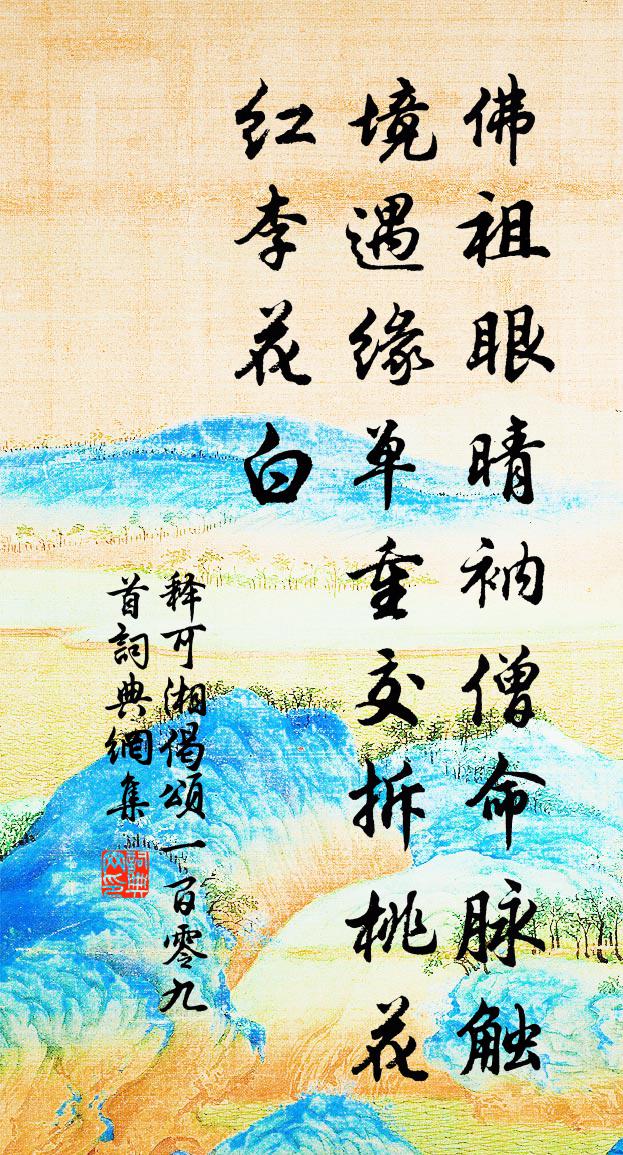 佛祖眼晴衲僧命脉触
境遇缘单重交拆桃花
红李花白
释可湘偈頌一百零九
首詞典網集